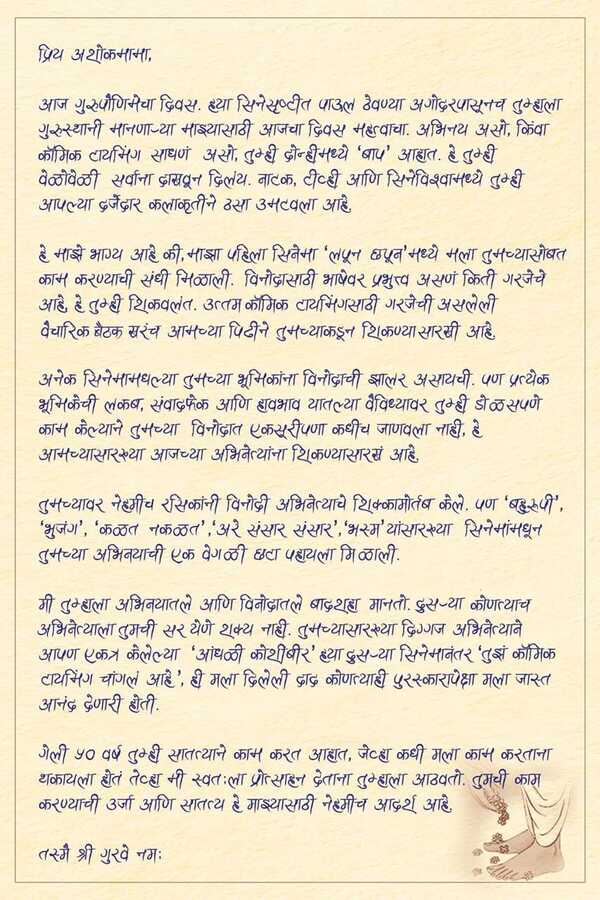 प्रिय अशोकमामा,
आज गुरुपौणिमेचा दिवस. ह्या सिनेसृष्टीत पाउल ठेवण्या अगोदरपासूनच तुम्हाला
गुरुस्थानी मानणाऱ्या माझ्यासाठी आजचा दिवस महत्वाचा. अभिनय असो, किंवा
कॉमिक टायमिंग साधणं असो, तुम्ही दोन्हीमध्ये 'बाप' आहात. हे तुम्ही
वेळोवेळी सर्वांना दाखवून दिलंय. नाटक, टीव्ही आणि सिनेविश्वामध्ये तुम्ही
आपल्या दर्जेदार कलाकृतीने ठसा उमटवला आहे.
हे माझे भाग्य आहे की, माझा पहिला सिनेमा 'लपून छपून'मध्ये मला तुमच्यासोबत
काम करण्याची संधी मिळाली. विनोदासाठी भाषेवर प्रभुत्त्व असणं किती गरजेचे
आहे, हे तुम्ही शिकवलंत. उत्तम कॉमिक टायमिंगसाठी गरजेची असलेली
वैचारिक बैठक खरंच आमच्या पिढीने तुमच्याकडून शिकण्यासारखी आहे.
अनेक सिनेमामधल्या तुमच्या भूमिकांना विनोदाची झालर असायची. पण प्रत्येक
भूमिकेची लकब, संवादफेक आणि हावभाव यातल्या वैविध्यावर तुम्ही डोळसपणे
काम केल्याने तुमच्या विनोदात एकसूरीपणा कधीच जाणवला नाही, हे
आमच्यासारख्या आजच्या अभिनेत्यांना शिकण्यासारखं आहे.
तुमच्यावर नेहमीच रसिकांनी विनोदी अभिनेत्याचे शिक्कामोर्तब केले. पण 'बहुरुपी',
'भुजंग', 'कळत नकळत','अरे संसार संसार','भस्म'यांसारख्या सिनेमांमधून
तुमच्या अभिनयाची एक वेगळी छटा पहायला मिळाली.
मी तुम्हाला अभिनयातले आणि विनोदातले बादशहा मानतो. दुसऱ्या कोणत्याच
अभिनेत्याला तुमची सर येणे शक्य नाही. तुमच्यासारख्या दिग्गज अभिनेत्याने
आपण एकत्र केलेल्या 'आंधळी कोशींबीर' ह्या दुसऱ्या सिनेमानंतर 'तुझं कॉमिक
टायमिंग चांगलं आहे', ही मला दिलेली दाद कोणत्याही पुरस्कारापेक्षा मला जास्त
आनंद देणारी होती.
गेली ५० वर्ष तुम्ही सातत्याने काम करत आहात, जेव्हा कधी मला काम करताना
थकायला होतं तेव्हा मी स्वत:ला प्रोत्साहन देताना तुम्हाला आठवतो. तुमची काम
करण्याची उर्जा आणि सातत्य हे माझ्यासाठी नेहमीच आदर्श आहे.
तस्मै श्री गुरवे नम: